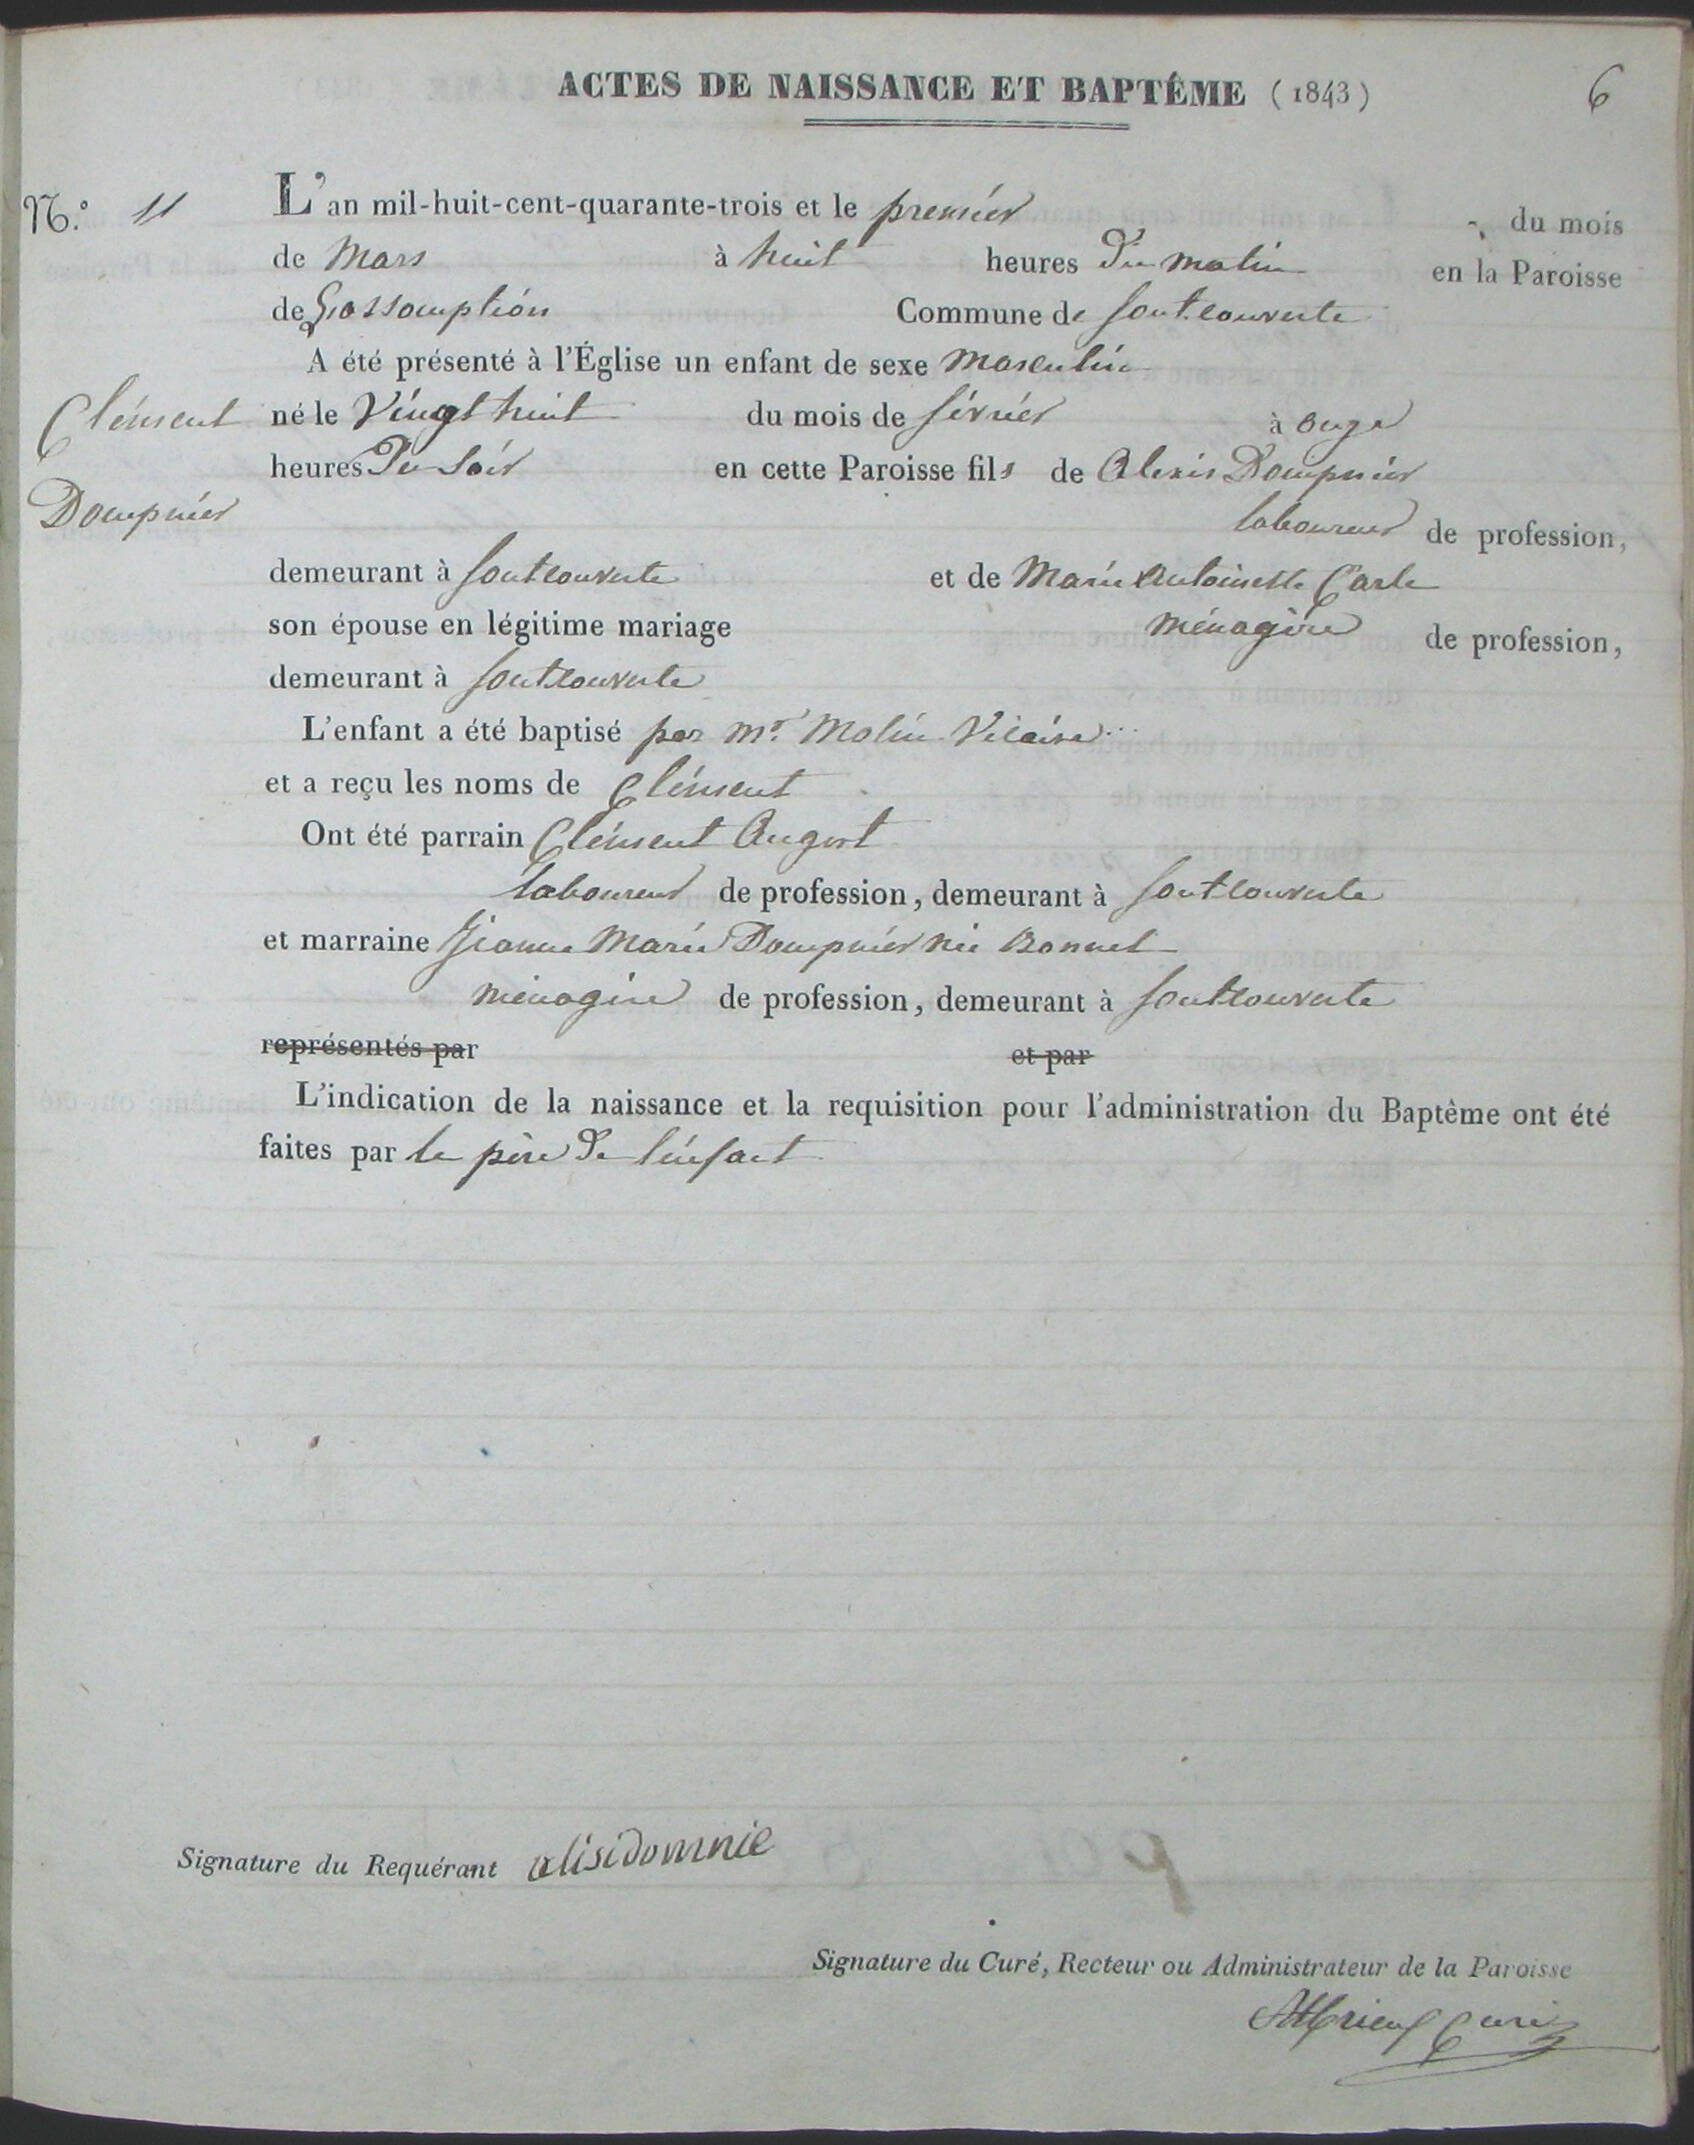 ACTES DE NAISSANCE ET BAPTÊME (1843) 6
N.° 11 L'an mil-huit-cent-quarante-trois et le premier du mois
de Mars à huit heures du matin en la Paroisse
de L'assomption Commune de fontcouverte
A été présenté à l'Église un enfant de sexe masculin
Clément né le vingt huit du mois de février à onze
heures du soir en cette Paroisse fils de Alexis Dompnier
Dompnier laboureur de profession,
demeurant à fontcouverte et de Marie Antoinette Carle
son épouse en légitime mariage ménagère de profession,
demeurant à fontcouverte
L'enfant a été baptisé par mr. Molin Vicaire
et a reçu les noms de Clément
Ont été parrain Clément Augert
laboureur de profession, demeurant à fontcouverte
et marraine Jeanne Marie Dompnier née Bonnel
ménagère de profession, demeurant à fontcouverte
représentés par et par
L'indication de la naissance et la requisition pour l'administration du Baptême ont été
faites par le père de l'enfant
Signature du Requérant alisidomnie
Signature du Curé, Recteur ou Administrateur de la Paroisse
curé